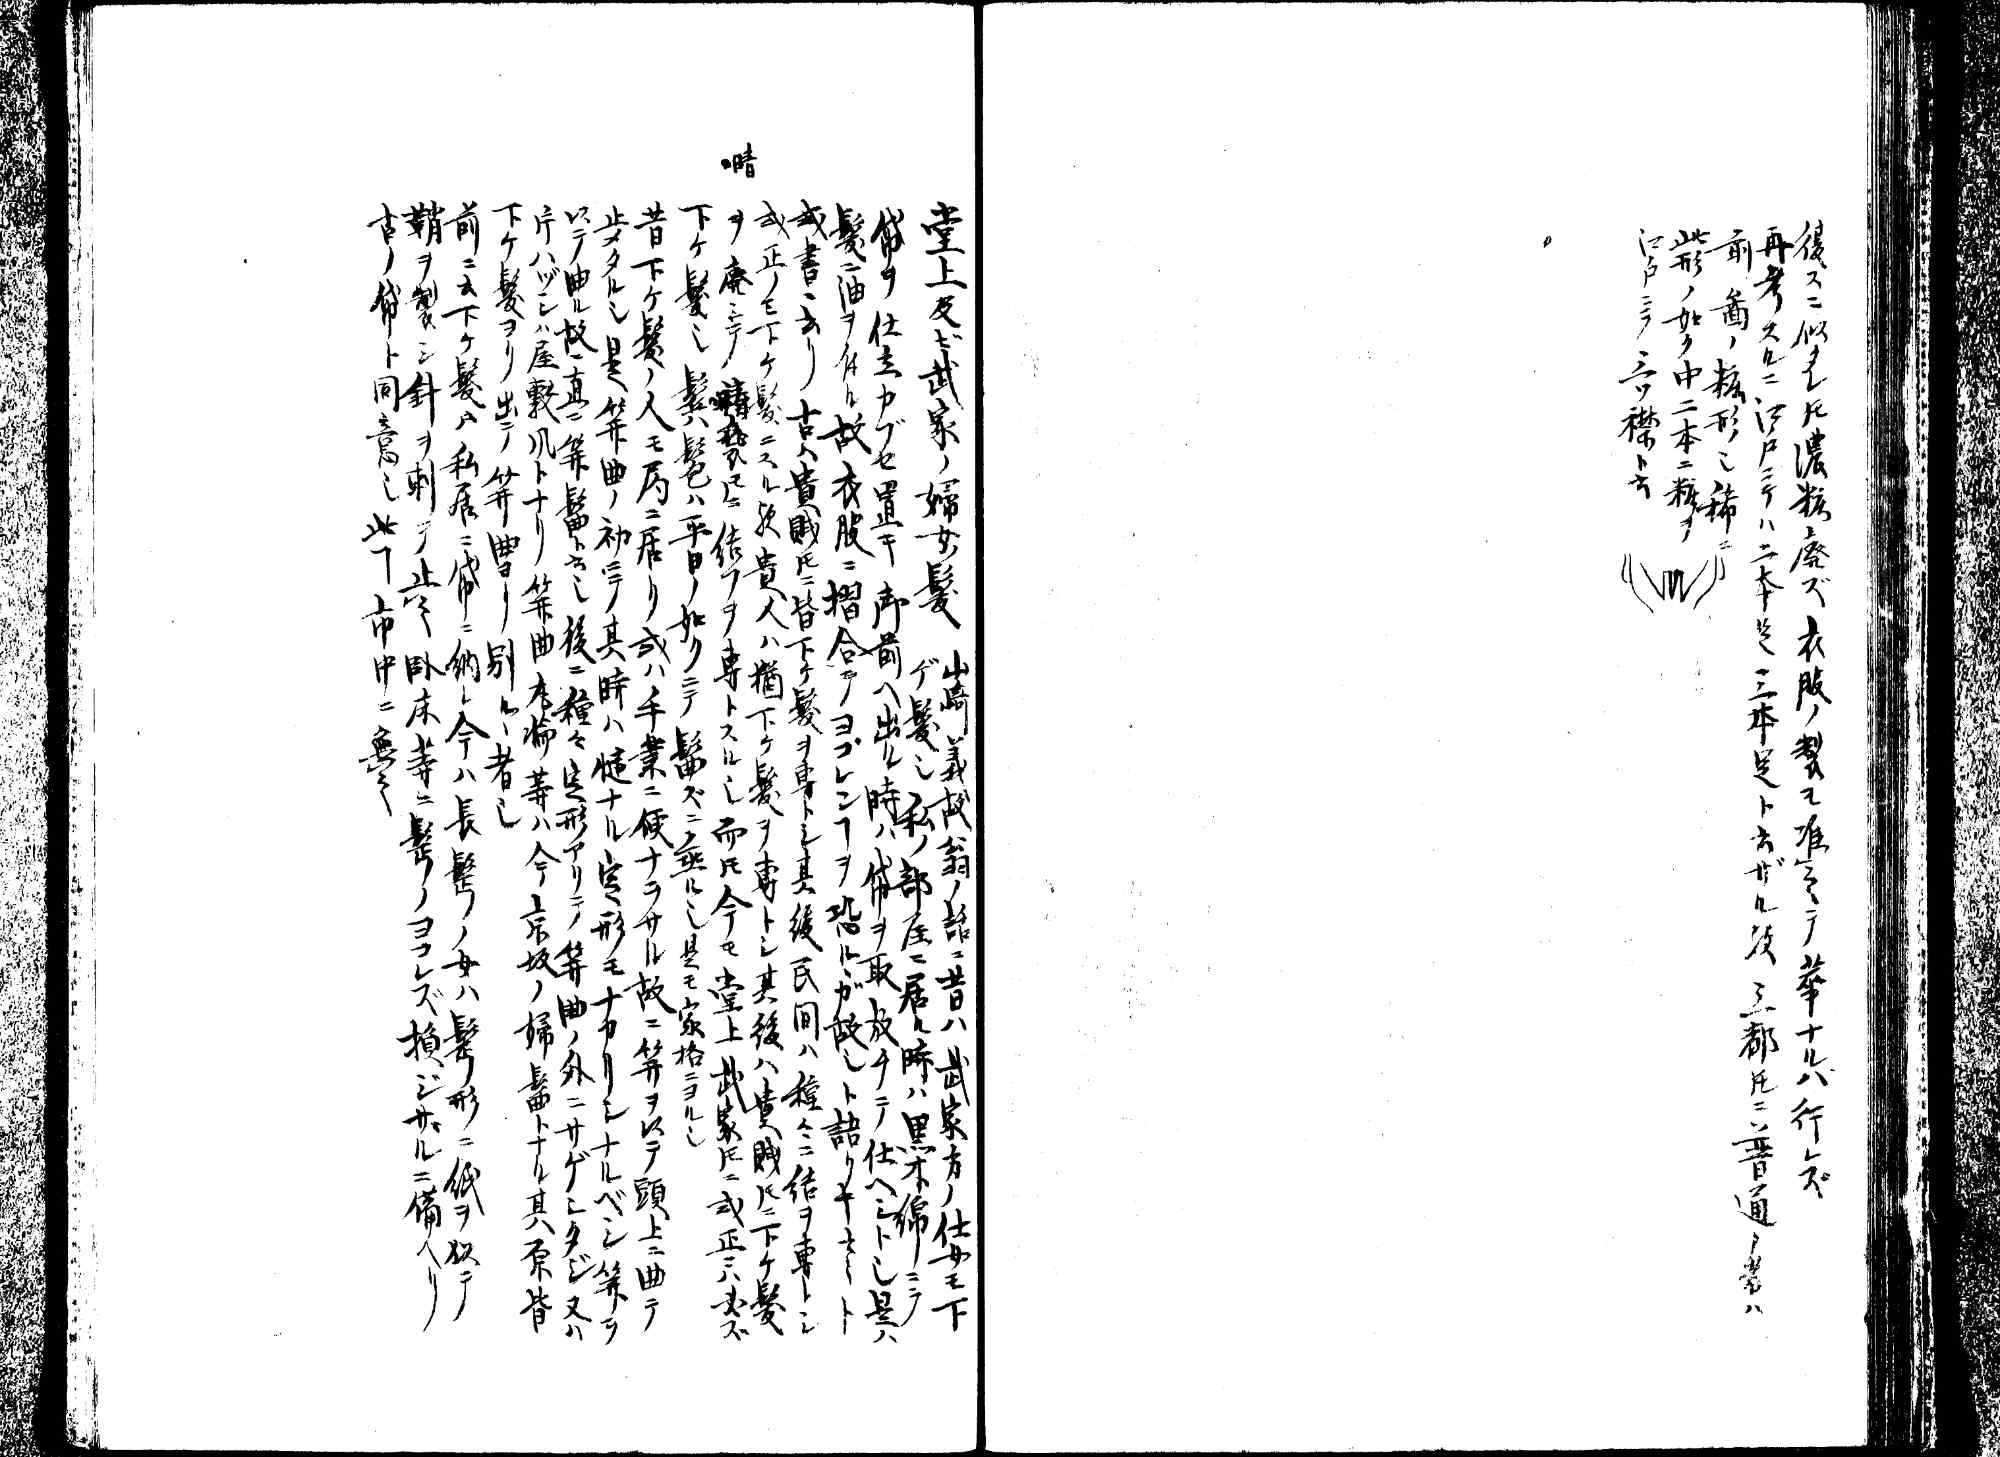 復スニ似タレ𪜈濃粧廃ズ衣服ノ製モ准之テ華ナルハ行レズ
再考スルニ江戸ニテハ二本足三本足ト云ザル歟三都𪜈ニ普通ノ者ハ
前図ノ粧形也稀ニ
此形ノ如ク中二本ニ粧ヲ
江戸ニテ三ツ襟ト云
堂上及ビ武家ノ婦女ノ髪 山崎義故翁ノ話ニ昔ハ武家方ノ仕女モ下
ゲ髪也私ノ部屋ニ居ル時ハ黒木綿ニテ
袋ヲ仕立カブセ置キ御前ヘ出ル時ハ袋ヲ取放チテ仕ヘシト也是ハ
髪ニ油ヲ付ル故衣服ニ摺合テヨゴレンヿヲ恐ルガ故也ト語リキ云々ト
或書ニ云リ古ハ貴賎𪜈ニ皆下ケ髪ヲ専トシ其後民間ハ種々ニ結ヲ専トシ
或正ノミ下ケ髪ニスル歟貴人ハ猶下ケ髪ヲ専トシ其後ハ貴賎𪜈ニ下ケ髪
ヲ廃シテ晴褻𪜈ニ結フヲ専トスル也而𪜈今モ堂上武家𪜈ニ或正ニハ必ズ
晴
下ケ髪也鬂ハ髱ハ平日ノ如クニテ髷ズニ垂ル也是モ家格ニヨル也
昔下ケ髪ノ人モ局ニ居リ或ハ手業ニ便ナラサル故ニ笄ヲ以テ頭上ニ曲テ
止メタル也是笄曲ノ初ニテ其時ハ慥ナル定形モナカリシナルベシ笄ヲ
以テ曲ル故ニ直ニ笄髷ト云也後ニ種々定形アリテ笄曲ノ外ニサゲシタジ又ハ
片ハヅシハ屋敷風トナリ笄曲先笄等ハ今京坂ノ婦髷トナル其原皆
下ケ髪ヨリ出テ笄曲ヨリ別ルヽ者也
前ニ云下ケ髪ハ私居ニ袋ニ納ル今ハ長髱ノ女ハ髱ノ形ニ紙ヲ以テ
鞘ヲ製シ針ヲ刺テ止之臥床等ニ髱ノヨゴレズ損ジザルニ備ヘリ
古ノ袋ト同意也此ヿ市中ニ無之